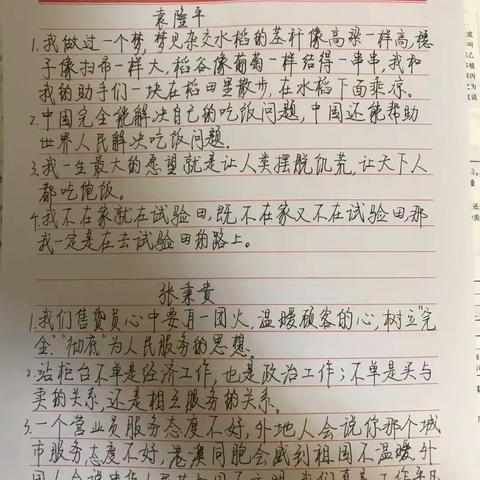 袁隆平
1.我做过一个梦,梦见杂交水稻的茎秆像高粱一样高,穗
子像扫帚一样大,稻谷像葡萄一样结得一串串,我和
我的助手们一块在稻田里散步,在水稻下面乘凉。
2.中国完全能解决自己的吃饭问题,中国还能帮助
世界人民解决吃饭问题.
3.我一生最大的愿望就是让人类摆脱饥荒,让天下人
都吃饱饭。
4.我不在家就在试验田,既不在家又不在试验田那
我一定是在去试验田的路上。
张秉贵
1.我们售货员心中要有一团火,温暖顾客的心,树立"完
全""彻底"为人民服务的思想。
2.站柜台不单是经济工作,也是政治工作;不单是买与
卖的关系,还是相互服务的关系。
3.一个营业员服务态度不好,外地人会说你那个城
市服务态度不好,港澳同胞会感到祖国不温暖,外